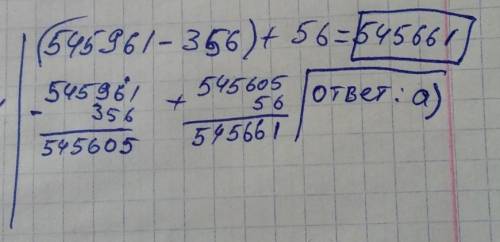 (545961 - 356) + 56 = 545661
545961
- 356
545605
+ 545605
56
545661
ответ: а)